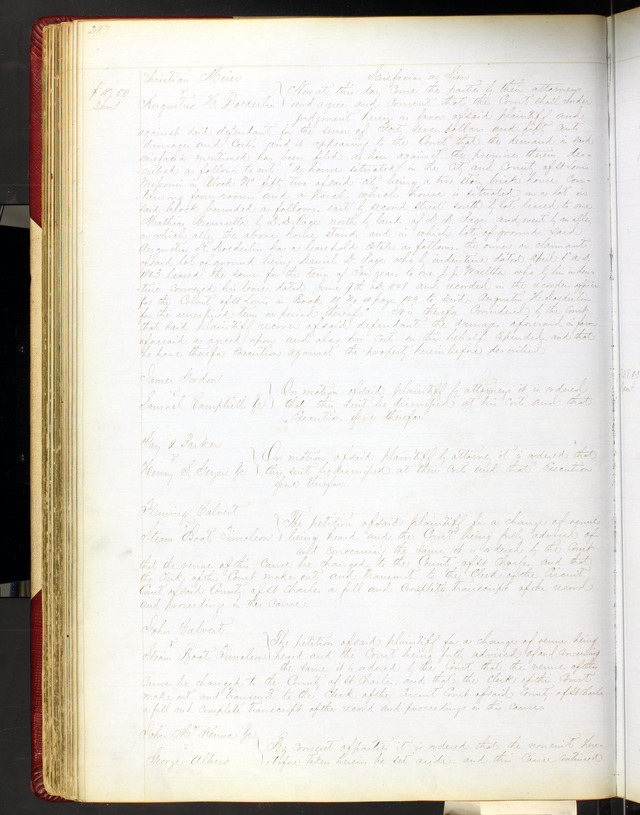 Christian Meier
vs
Augustus H. Doederlin
Scirefacias on Lien
Now at this day come the parties by their attorneys
and agree and consent that the Court shall render
judgment herein in favor of said plaintiff and
against said defendant in the sum of Forty Seven dollars and fifty Cents
damages and Costs, and it appearing to the Court that the demand in said
scirefacias mentioned has been filed as lien against the premises therein des-
cribed as follows to wit "A house situated in the City and County of St Louis
Missouri in Block No fifty two of said City being a two story brick house Con-
taining four rooms and a porch which House is situated on a lot in
said block bounded as follows, East by second street, south by lot leased to one
north by land of D. D. Page and west by an alley
on which lot the above house stands and in which lot of ground said
Augustus H. Doederlin has a leasehold Estate as follows, the owner or claimant
of said lot of ground being Daniel D. Page who by indenture dated April 1st A.D.
1843 leased the same for the term of ten years to one who by inden-
ture Conveyed his lease dated June 9th and recorded in the recorders office
for the County of St Louis in Book to said Augustus H. Doederlin
for the unexpired term or period thereof" It is therefore Considered by the Court
that said plaintiff recover of said defendant the damages aforesaid in form
aforesaid as agreed upon and also his Costs in this behalf Expended and that
he have therefor Execution against the property herein before described
James Gordon
vs
Samuel Campbell &c
On motion of said plaintiff by attorney it is ordered
that this suit be dismissed at his Cost and that
Execution issue therefor
Gay & Parker
vs
Henry S. Geyer &c
On motion of said plaintiff by attorney it is ordered that
this suit be dismissed at their Costs and that Execution
issue therefor
Fleming Calvert
vs
Steam Boat Timoleon
The petition of said plaintiff for a change of venue
being heard and the Court being fully advised of
and concerning the same it is ordered by the Court
that the venue of this Cause be changed to the County of St Charles, and that
the Clerk of this Court make out and transmit to the Clerk of the Circuit
Court of said County of St Charles a full and Complete transcript of the record
and proceedings in this Cause
John Calvert
vs
Steam Boat Timoleon
The petition of said plaintiff for a change of venue being
heard and the Court being fully advised of and concerning
the same it is ordered by the Court that the venue of this
Cause be changed to the County of St Charles, and that the Clerk of this Court
make out and transmit to the Clerk of the Circuit Court of said County of St Charles
a full and Complete transcript of the record and proceedings in this Cause
vs
George Albers
By consent of parties it is ordered that the nonsuit here-
tofore taken herein be set aside and this Cause Continued